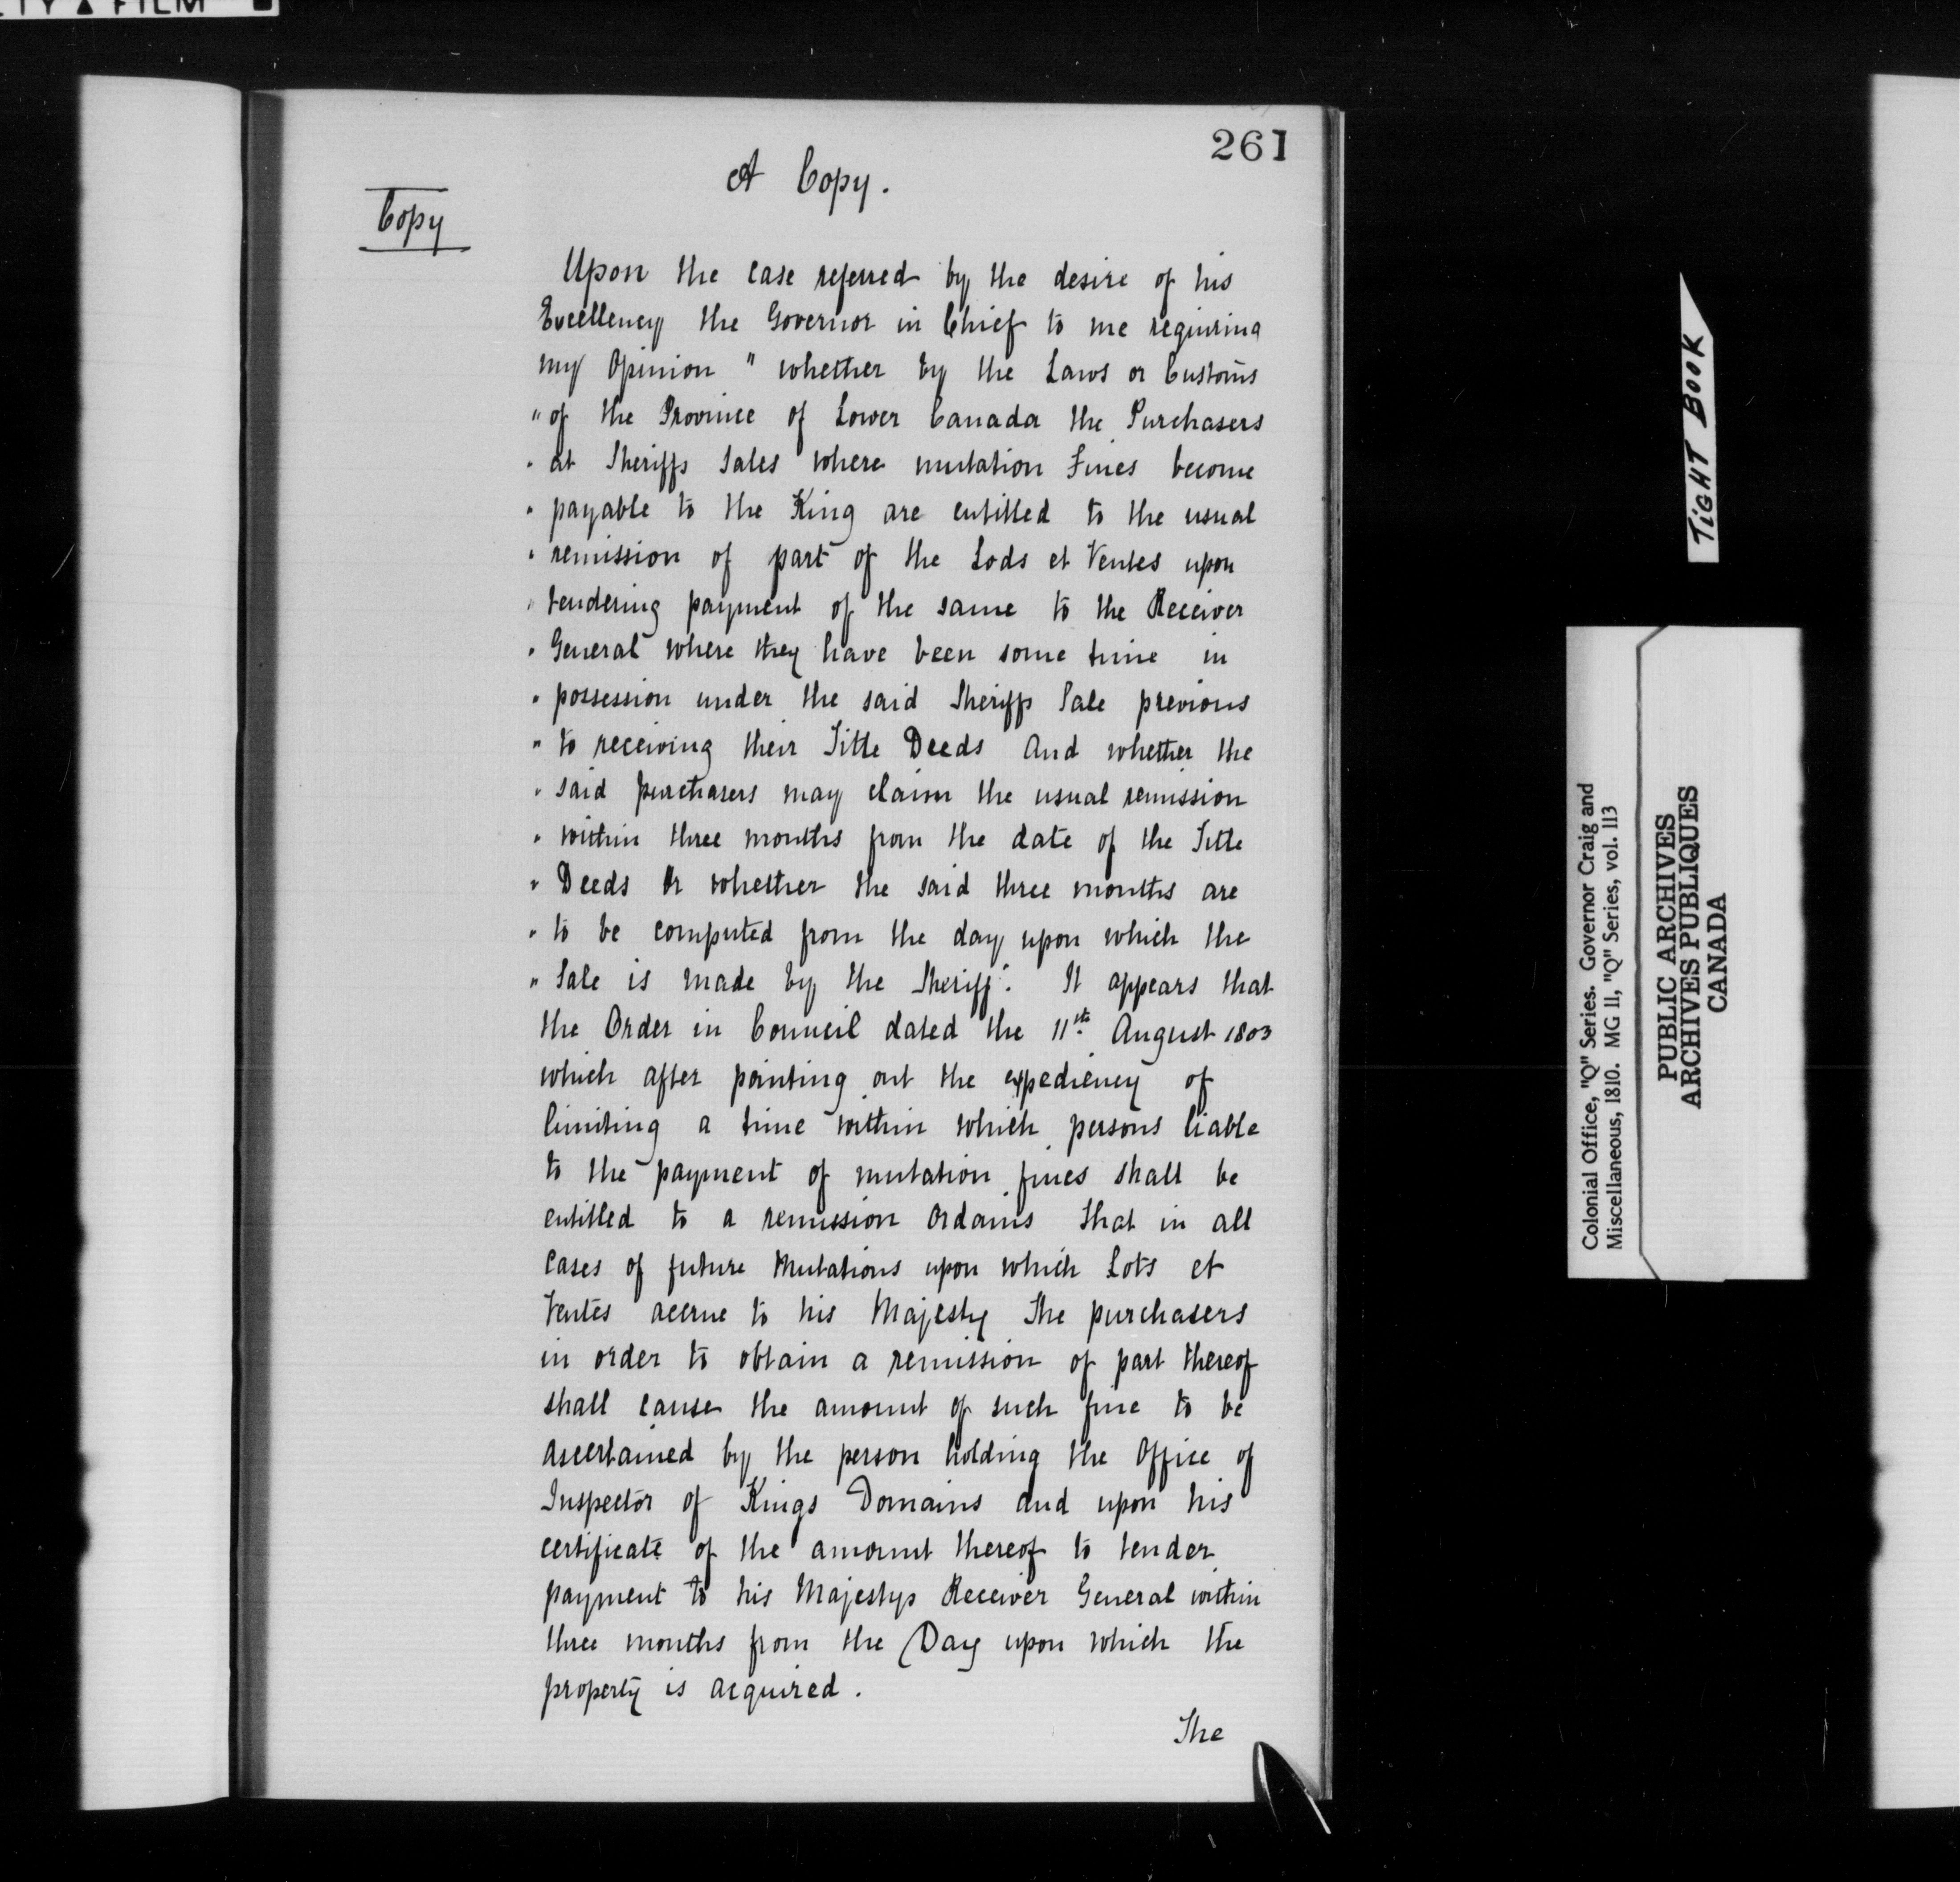 261
A Copy.
Copy
Upon the case referred by the desire of his
Excellency the Governor in Chief to me requiring
my Opinion " whether by the Laws or Customs
" of the Province of Lower Canada the Purchasers
" at Sheriffs Sales where mutation Fines become
" payable to the King are entitled to the usual
" remission of part of the Lods et Ventes upon
" tendering payment of the same to the Receiver
" General where they have been some time in
" possession under the said Sheriffs Sale previous
" to receiving their Title Deeds And whether the
" said purchasers may claim the usual remission
" within three months from the date of the Title
" Deeds Or whether the said three months are
" to be computed from the day upon which the
" Sale is made by the Sheriff." It appears that
the Order in Council dated the 11th August 1803
which after pointing out the expediency of
limiting a time within which persons liable
to the payment of mutation fines shall be
entitled to a remission Ordains that in all
Cases of future Mutations upon which Lots et
Ventes accrue to his Majesty The purchasers
in order to obtain a remission of part thereof
shall cause the amount of such fine to be
ascertained by the person holding the Office of
Inspector of Kings Domains and upon his
certificate of the amount thereof to tender
payment to his Majestys Receiver General within
three months from the Day upon which the
property is acquired.
The
TIGHT BOOK
Colonial Office, "Q" Series. Governor Craig and
Miscellaneous, 1810. MG 11, "Q" Series, vol. 113
PUBLIC ARCHIVES
ARCHIVES PUBLIQUES
CANADA